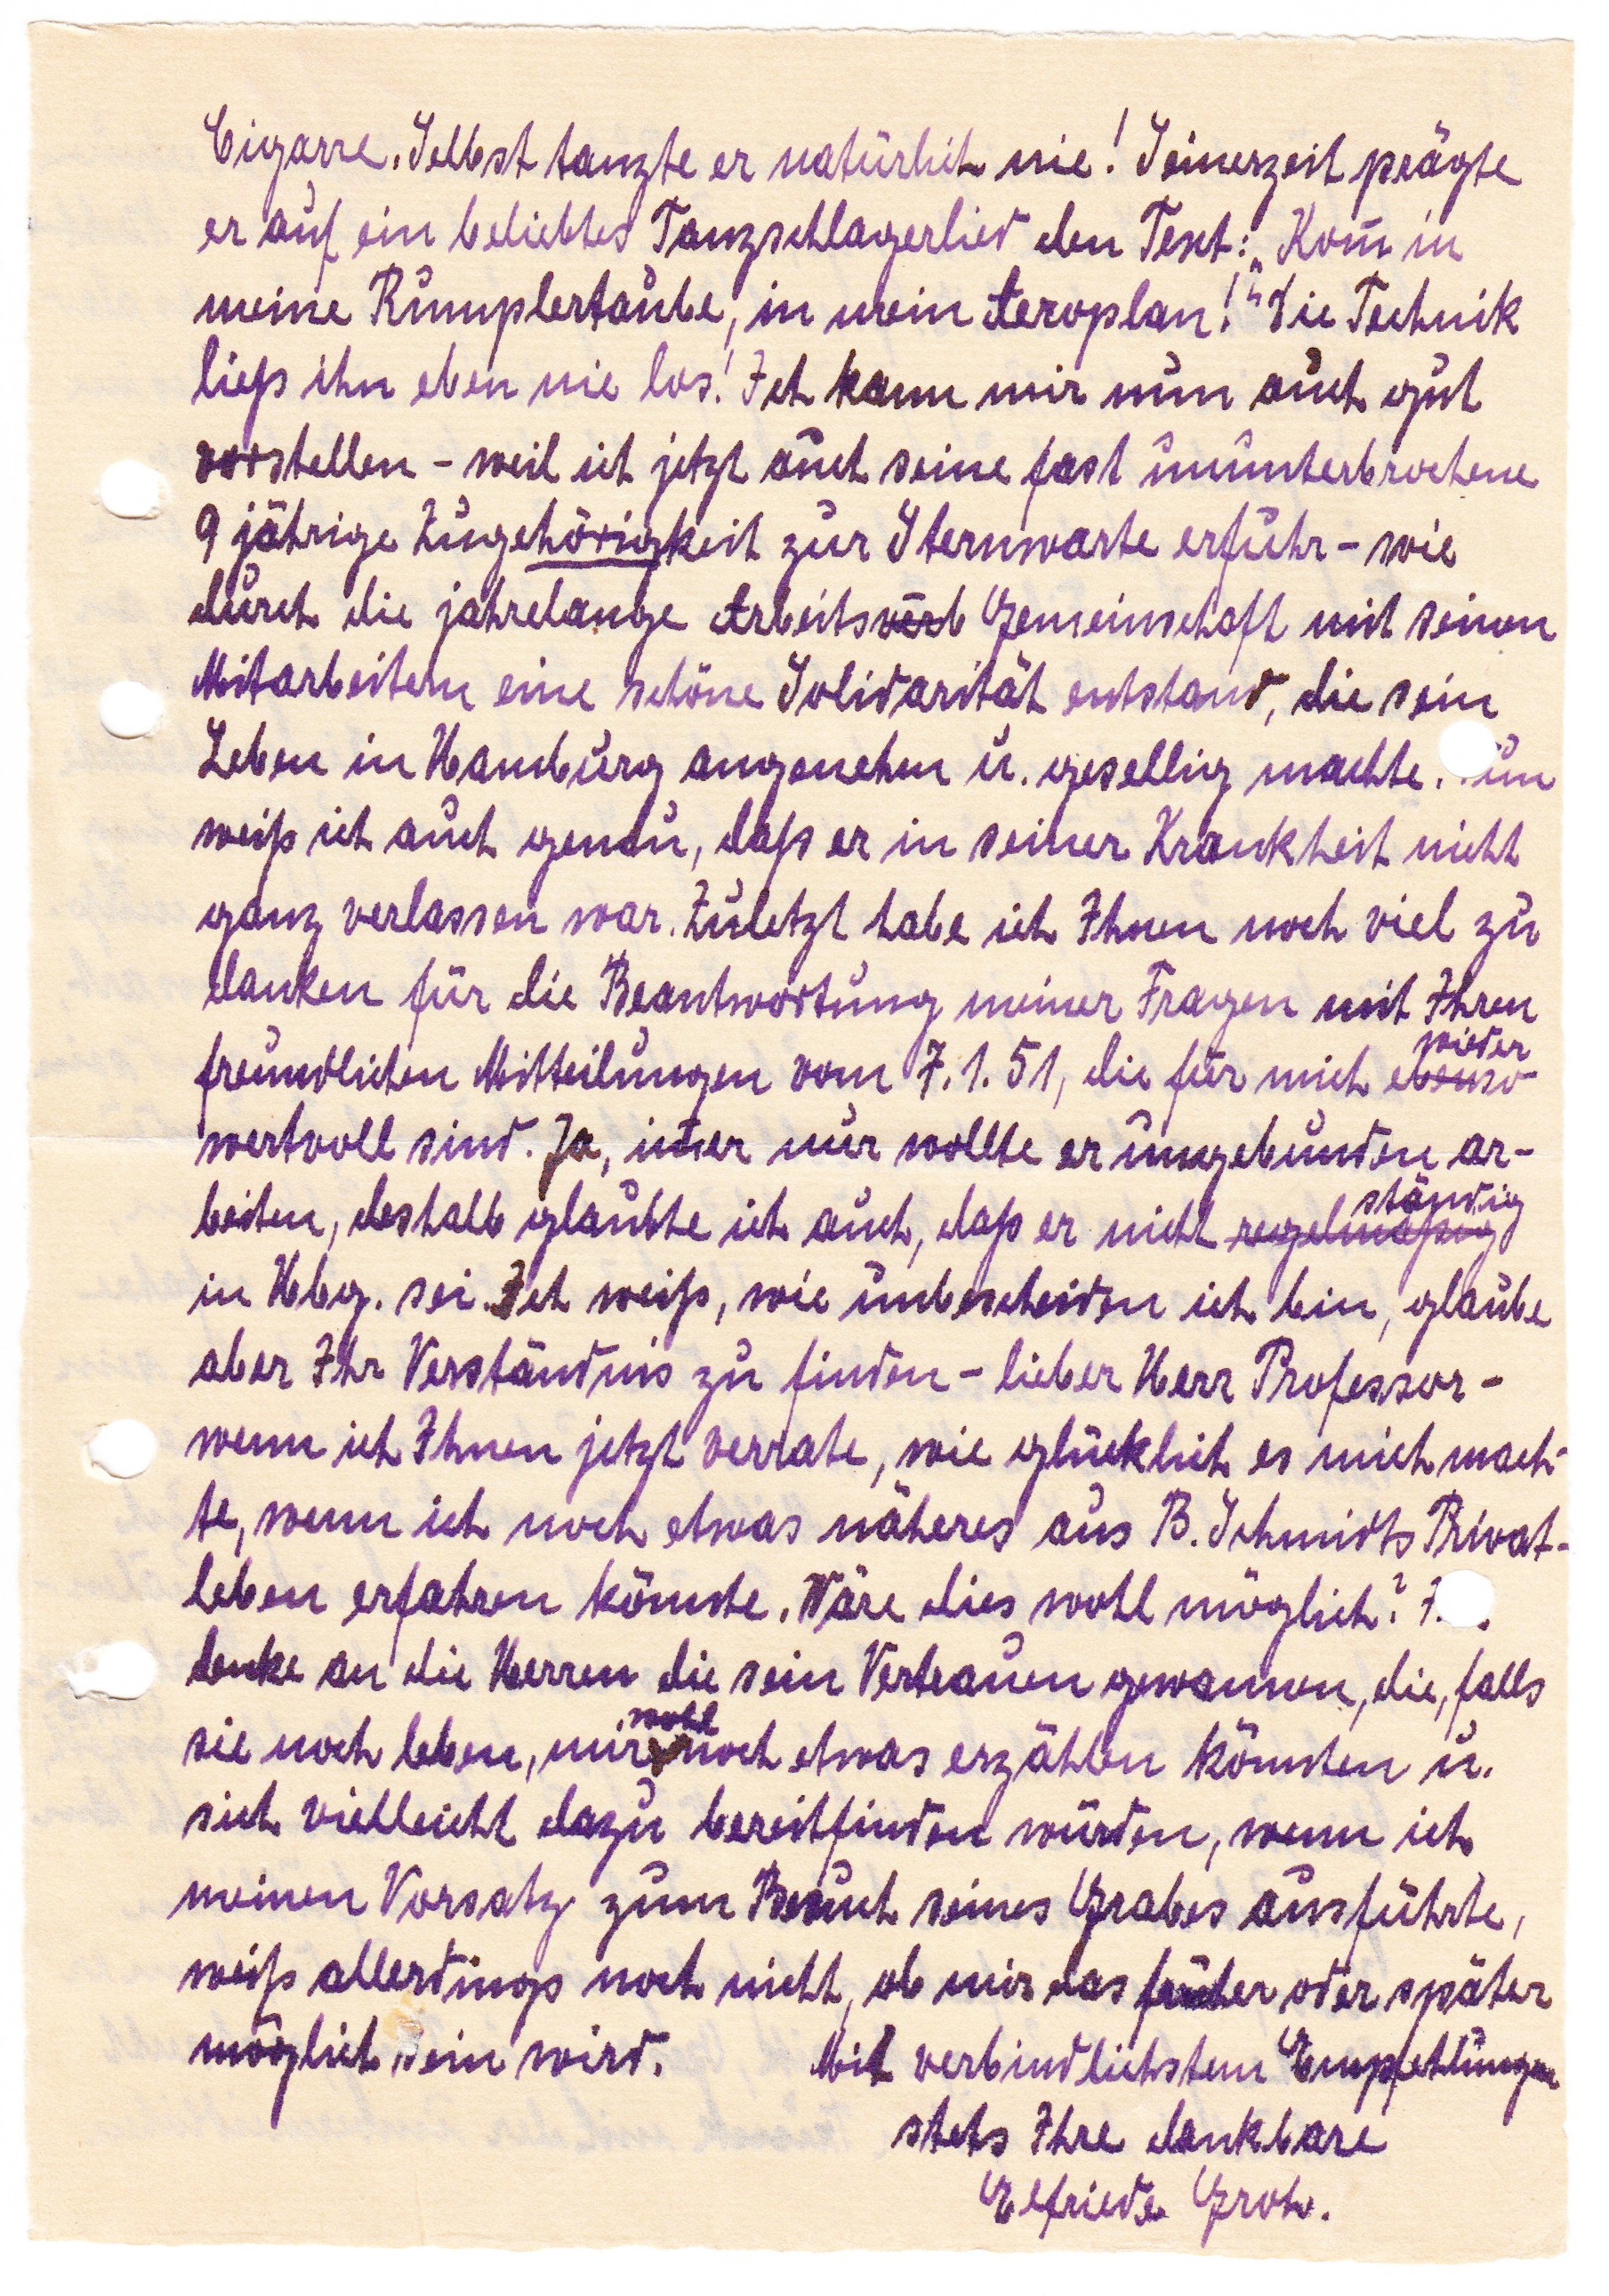 Cigarre. Selbst tanzte er natürlich nie! Seinerzeit prägte
er auf ein beliebtes Tanzschlagerlied den Text: „Kom̄ in
meine Rumplertaube, in mein Aeroplan!“ Die Technik
ließ ihn eben nie los! Ich kann mir nun auch gut
vorstellen – weil ich jetzt auch seine fast ununterbrochene
9 jährige Zugehörigkeit zur Sternwarte erfuhr – wie
durch die jahrelange Arbeitsverb Gemeinschaft mit seinen
Mitarbeitern eine schöne Solidarität entstand, die sein
Leben in Hamburg angenehm u. gesellig machte. un
weiß ich auch genau, daß er in seiner Krankheit nicht
ganz verlassen war. Zuletzt habe ich Ihnen noch viel zu
danken für die Beantwortung meiner Fragen mit Ihren
wieder
freundlichen Mitteilungen vom 7.1.51, die für mich ebenso
wertvoll sind. Ja, im̄er nur wollte er ungebunden ar-
ständig
beiten, deshalb glaubte ich auch, daß er nicht regelmäßig
in Hbg. sei. Ich weiß, wie unbescheiden ich bin, glaube
aber Ihr Verständnis zu finden – lieber Herr Professor –
wenn ich Ihnen jetzt verrate, wie glücklich es mich mach-
te, wenn ich noch etwas näheres aus B. Schmidts Privat-
leben erfahren könnte. Wäre dies wohl möglich?
denke an die Herren die sein Vertrauen gewannen, die, falls
wohl
sie noch leben, mir noch etwas erzählen könnten u.
sich vielleicht dazu bereitfinden würden, wenn ich
meinen Vorsatz zum Besuch seines Grabes ausführte,
weiß allerdings noch nicht, ob mir das früher oder später
möglich sein wird. Mit verbindlichsten Empfehlungen
stets Ihre dankbare
Elfriede Groh.